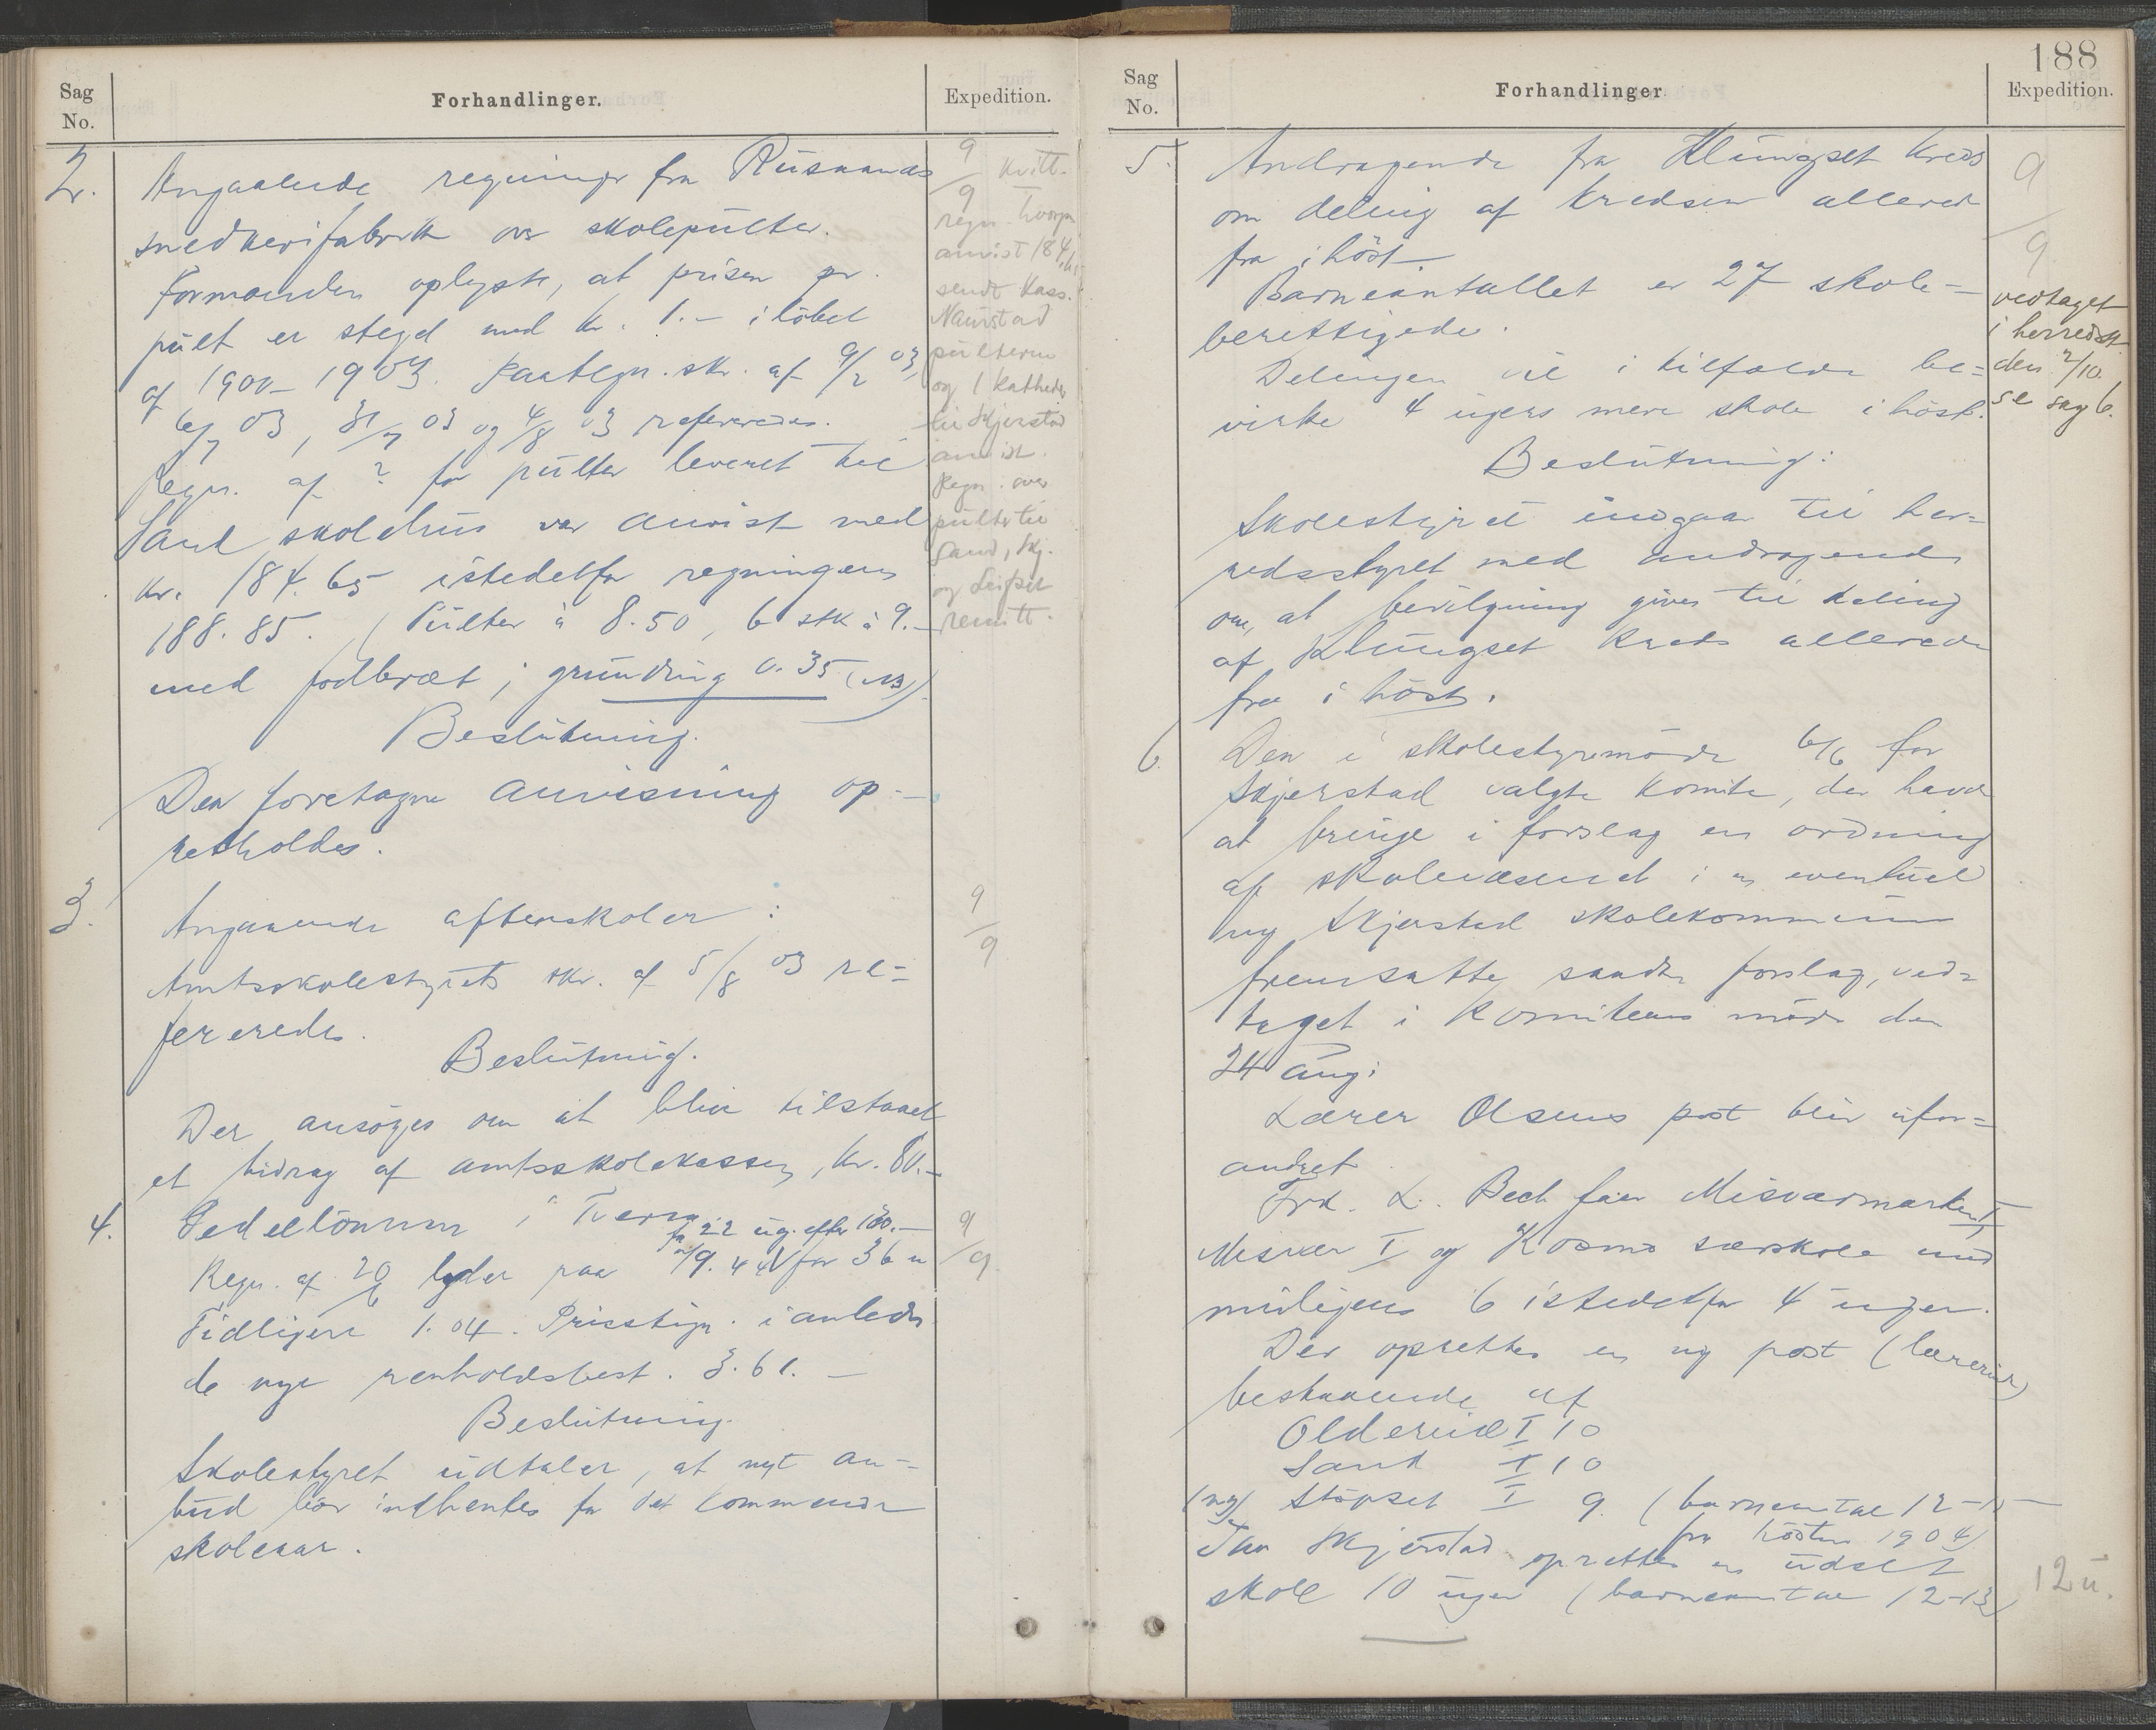 Sag
No.
Forhandlinger.
Expedition.
2.
Angaaende regninger fra Rusaanæs
snedkerifabrik over skolepulter.
Formanden oplyste, at prisen pr.
pult er stegd med kr. 1.- i løbet
af 1900-1903. Paategn. skr. af 9/2 03,
6/7 03, 31/7 03 og 4/8 03 refereredes.
Regn. af ? for pulter leveret til
Sand skolehus var anvist med
kr. 184.65 istedetfor regningens
188.85. (Pulter à 8.50, 6 stk à 9.-
med fodbræt; grunding 0.35 (NB)).
Beslutning.
Den foretagne anvisning op-
retholdes.
9/9 kvitt.
regn. hvorpaa
anvist 184,65
sendt Kass.
Naurstad
pulterne
og 1 Katheder
til Skjerstad
anvist.
Regn. over
pulter til
Sand, Skj.
og Leifset
remitt.
3.
Angaaende aftenskoler:
Amtsskolestyrets skr. af 5/8 03 re=
fereredes.
Beslutning.
Der ansøges om at blive tilstaaet
et bidrag af amtsskolekassen, kr. 80.-
9/9
4.
Pedellønnen i
for 22 ug. efter 180.-
Regn. af 20/6 lyder paa 19.44 for 36 u
Tidligere 1.04. Prisstign. i anledn
de nye renholdsbest. 3.61.-
Beslutning.
Skolestyret udtaler, at nyt an-
bud bør indhentes for det kommende
skoleaar.
9/9.
188
Sag
No.
Forhandlinger
Expedition.
5.
Andragende fra Klungset kreds
om deling af kredsen allerede
fra ihøst.
Barneantallet er 27 skole-
berettigede.
Delingen vil i tilfælde be=
virke 4 ugers mere skole i høst.
Beslutning:
Skolestyret indgaar til her=
redsstyret med andragende
om, at bevilgning gives til deling
af Klungset kreds allerede
fra i høst.
9/9
vedtaget
i herredsst.
den 2/10.
se sag 6.
6.
Den i skolestyremøde 6/6 for
Skjerstad valgte komite, der havde
at bringe i forslag en ordning
af skolevæsenet i en eventuel
ny Skjerstad skolekommune
fremsatte saadt forslag, ved=
taget i Komiteens møde den
24 aug:
Lærer Olsens post blir ufor=
andret
Frk. L. Bech faar Misværmarken I,
Misvær I og Kosmo særskole med
muligens 6 istedetfor 4 uger.
Der oprettes en ny post (lærerinde)
bestaaende af
Oldereid I 10
Sand I 10
(ny) Støpset I 9. (barneantal 12-15 -
fra høsten 1904)
Skjerstad oprettes en udelt
skole 10 uger (barneantal 12-13)
12 u.